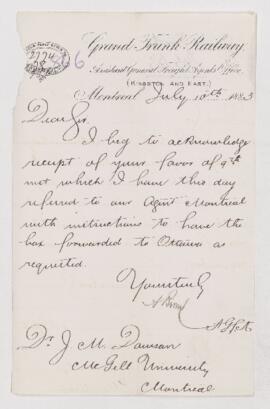 Grand Trunk Railway.
Assistant General Freight Agent's Office,
(KINGSTON AND EAST.)
Montreal July 10th 1883
Dear Sir
I beg to acknowledge
receipt of your favor of 9th
inst which I have this day
referred to our Agent Montreal
with instructions to have the
box forwarded to Ottawa as
requested.
Yours truly
A G F Agt
Dr J W Dawson
McGill University
Montreal